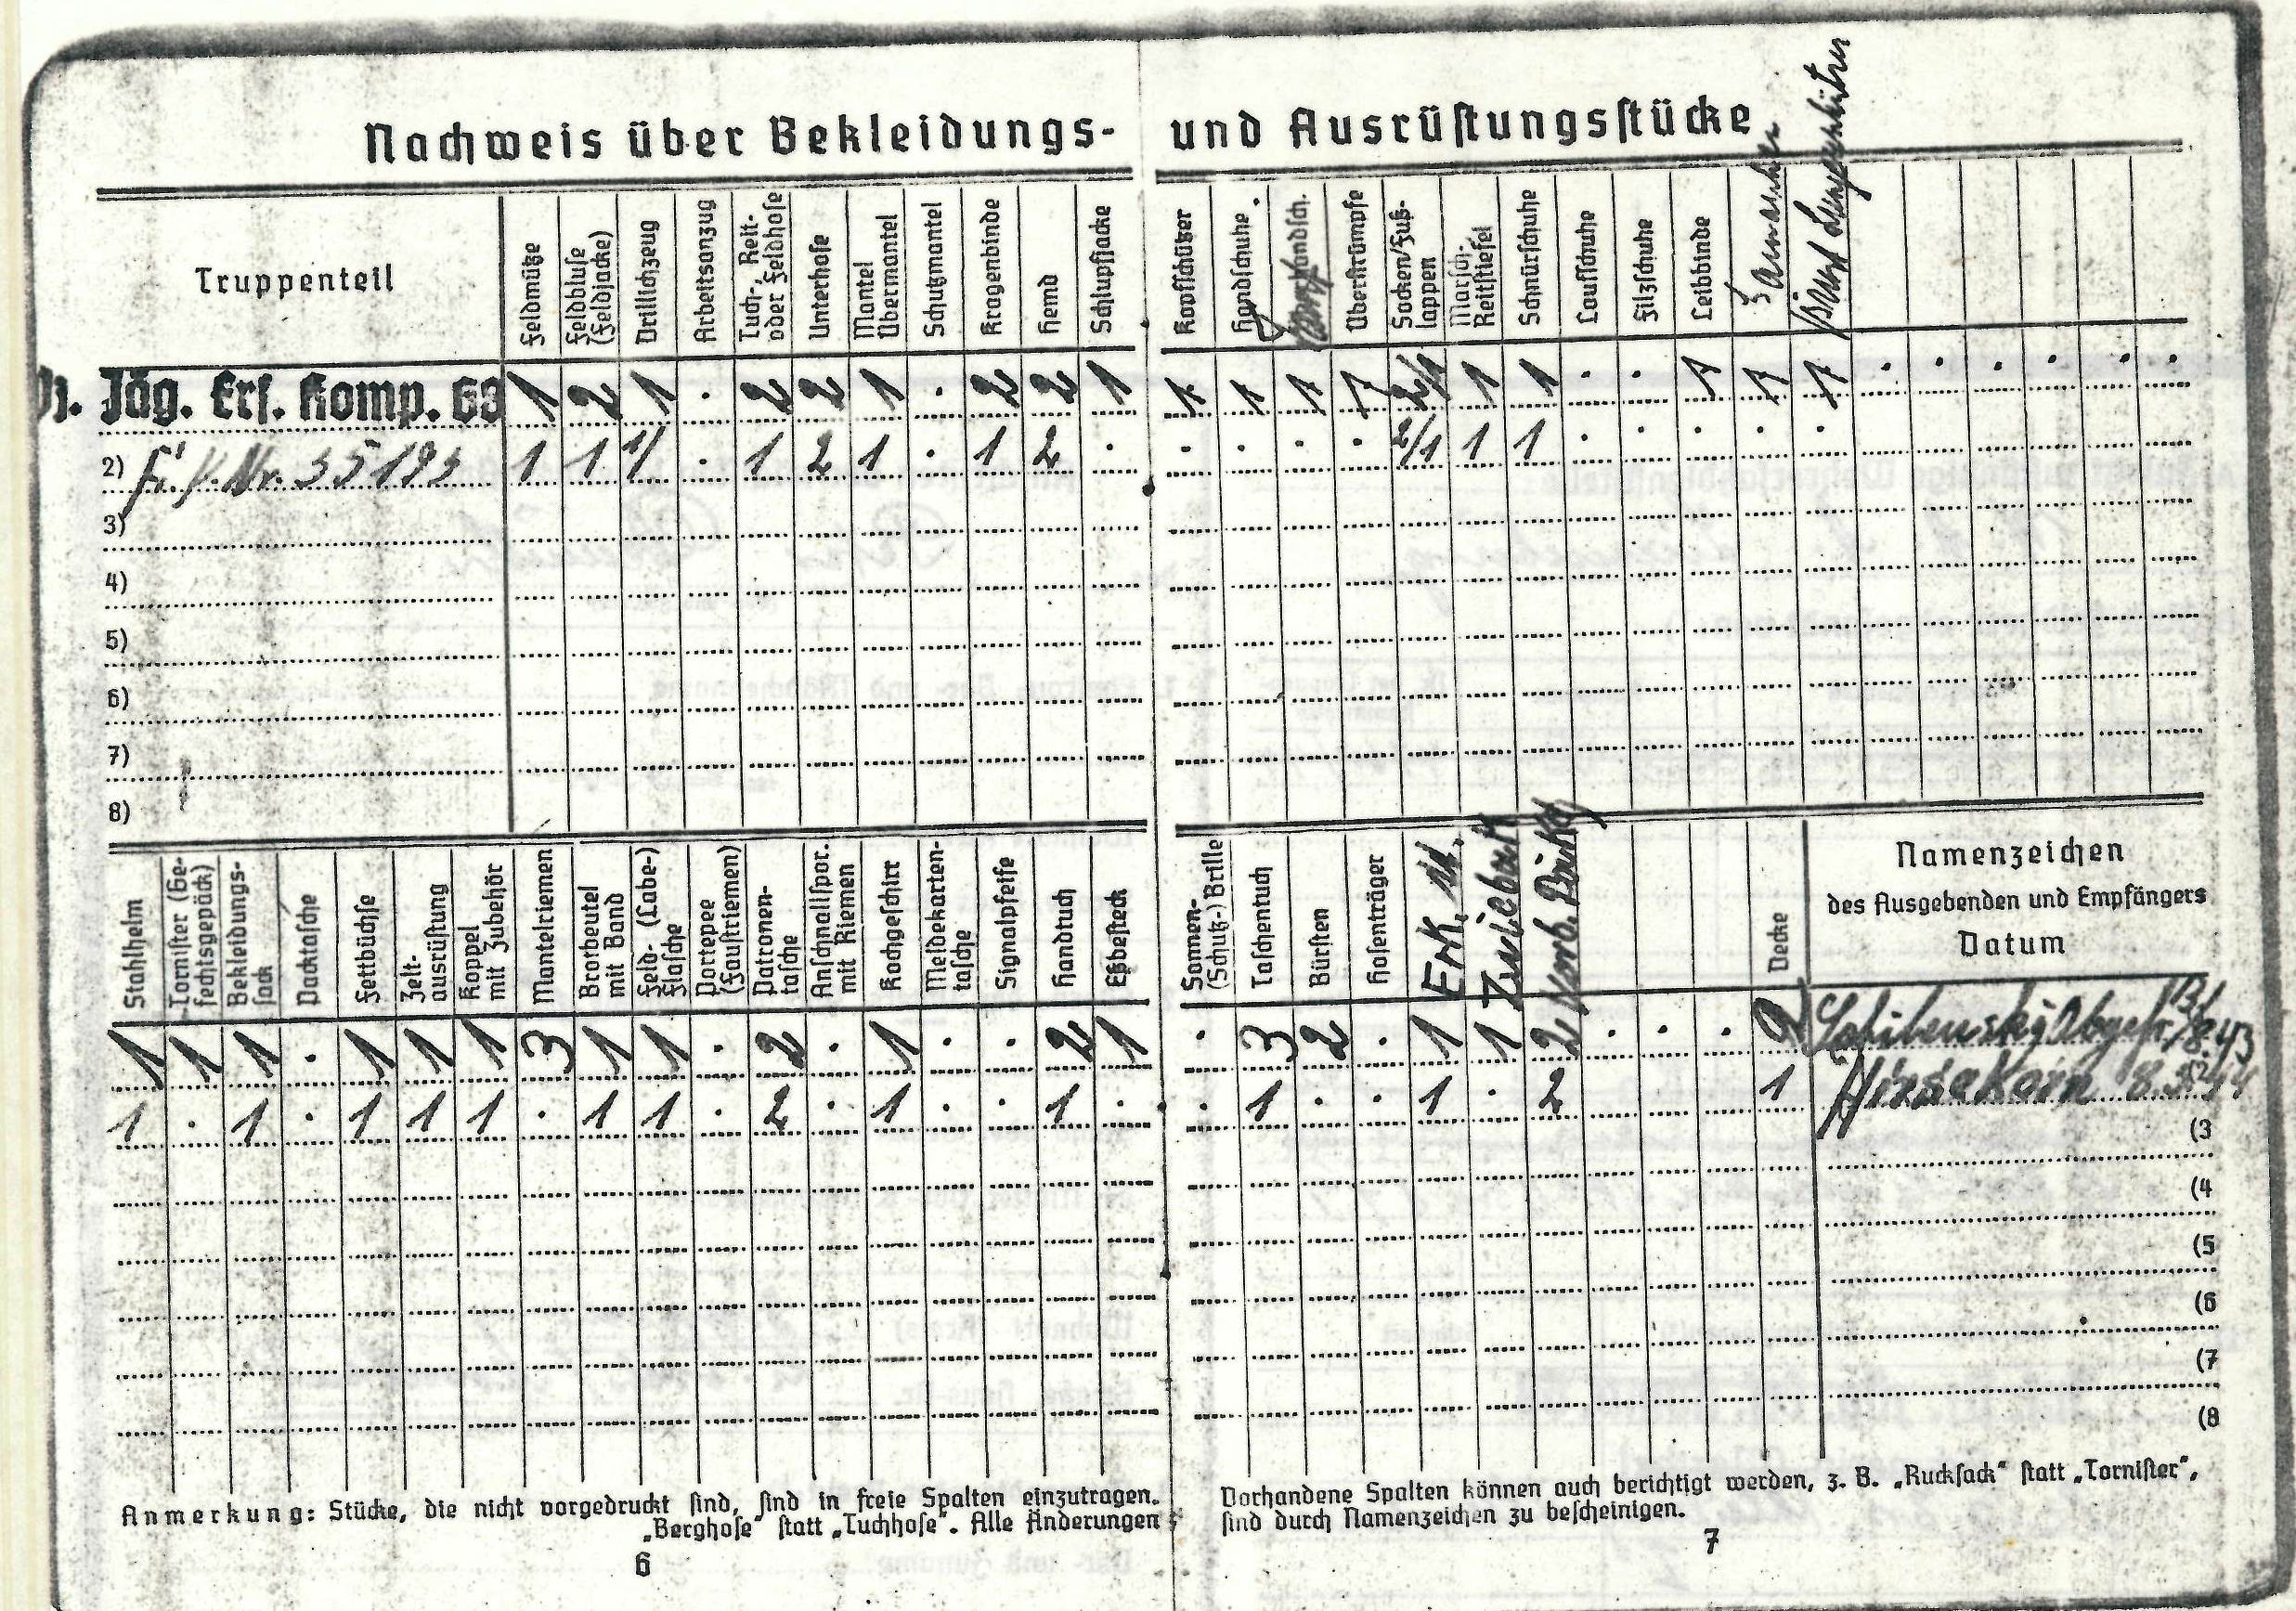 Nachweis über Bekleidungs- und Ausrüstungsstücke
Truppenteil
Feldmütze
Feldbluse (Feldjacke)
Drillichzeug
Arbeitsanzug
Tuch-, Reit- oder Feldhose
Unterhose
Mantel Übermantel
Schutzmantel
Kragenbinde
Hemd
Schlupfjacke
Kopfschützer
Handschuhe
Überstrümpfe
Socken/Fuß-lappen
Marsch- Reitstiefel
Schnürschuhe
Laufschuhe
Filzschuhe
Leibbinde
Jäg. Ers. Komp. 63 1 2 1 . 2 2 1 . 2 2 1 1 1 1 1 2/1 1 1 . . 1 1 1 . . . . . .
2) F.P.Nr. 35193 1 1 1/ . 1 2 1 . 1 2 . . . . . 2/1 1 1 . . . . .
3)
4)
5)
6)
7)
8)
Stahlhelm
Tornister (Ge-fechtsgepäck)
Bekleidungs-sack
Packtasche
Fettbüchse
Zelt-ausrüstung
Koppel mit Zubehör
Mantelriemen
Brotbeutel mit Band
Feld- (Labe-) flasche
Portepee (Faustriemen)
Patronen-tasche
Anschnallspor. mit Riemen
Kochgeschirr
Meldekarten-tasche
Signalpfeife
Handtuch
Eßbesteck
Sonnen- (Schutz-) Brille
Taschentuch
Bürsten
Hosenträger
Erk. M.
Zwieback
Verb. Päck
Decke
Namenzeichen
des Ausgebenden und Empfängers
Datum
1 1 1 . 1 1 1 3 1 1 . 2 . 1 . . 2 1 . 3 2 . 1 1 2 . . . 2
1 . 1 . 1 1 1 . 1 1 . 2 . 1 . . 1 . . 1 . . 1 . 2 1
(3
(4
(5
(6
(7
(8
Anmerkung: Stücke, die nicht vorgedruckt sind, sind in freie Spalten einzutragen. Vorhandene Spalten können auch berichtigt werden, z. B. „Rucksack“ statt „Tornister“,
„Berghose“ statt „Tuchhose“. Alle Änderungen sind durch Namenzeichen zu bescheinigen.
6
7